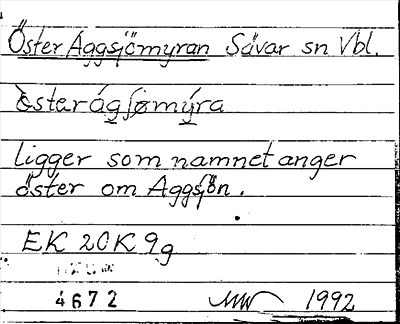 Öster Aggsjömyran Sävar sn Vbl.
österágsjømýra
ligger som namnet anger
öster om Aggsjön.
EK 20K 9g
4672 1992